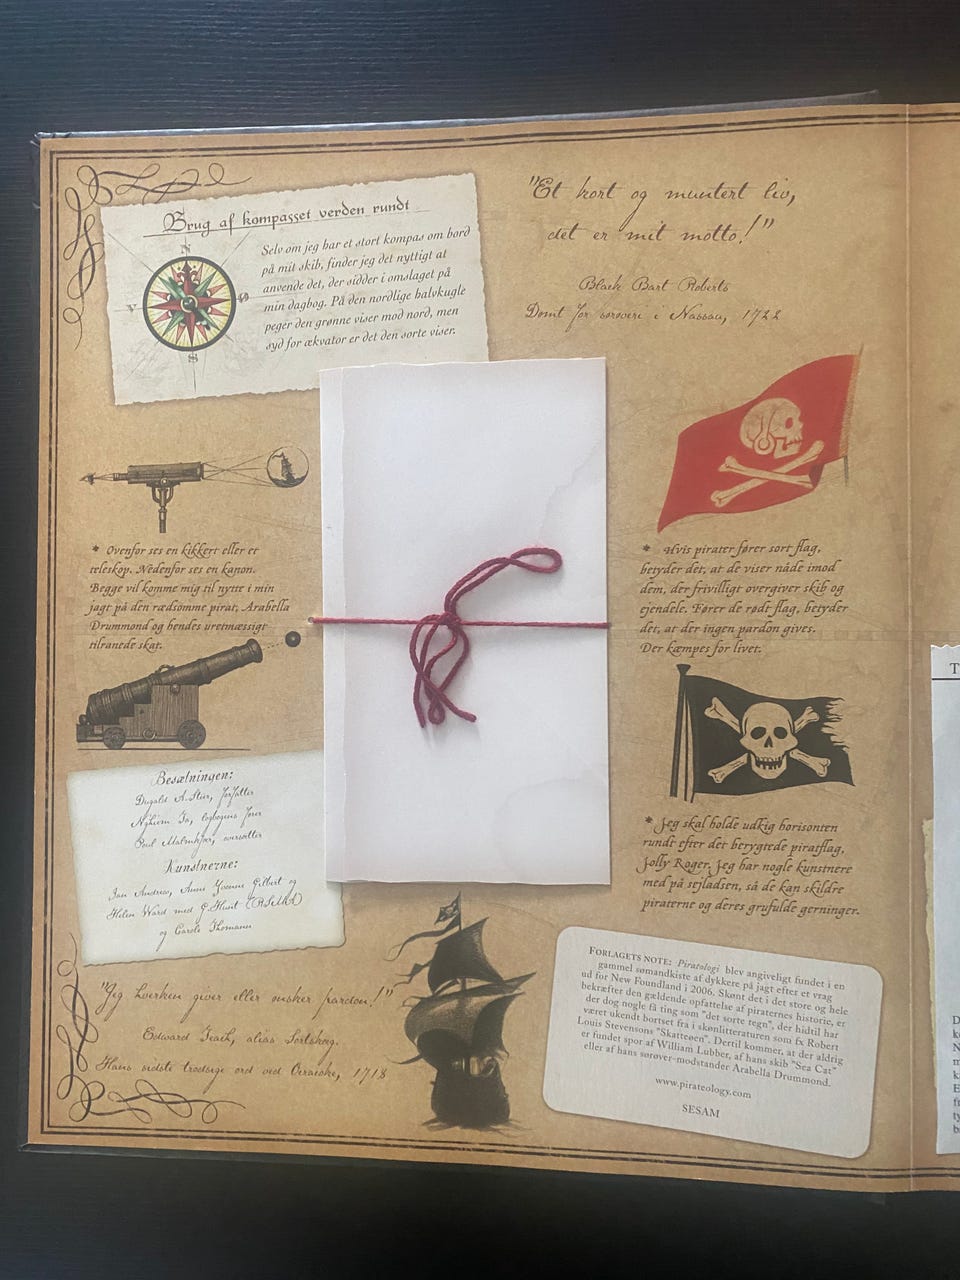 Brug af kompasset verden rundt
N
V
Ø
S
Selv om jeg har et stort kompas om bord
på mit skib, finder jeg det nyttigt at
anvende det, der sidder i omslaget på
min dagbog. På den nordlige halvkugle
peger den grønne viser mod nord, men
syd for ækvator er det den sorte viser.
"Et kort og muntert liv,
det er mit motto!"
Black Bart Roberts
Dømt for sørøveri i Nassau, 1722
* Ovenfor ses en kikkert eller et
teleskop. Nedenfor ses en kanon.
Begge vil komme mig til nytte i min
jagt på den rædsomme pirat, Arabella
Drummond og hendes uretmæssigt
tilranede skat.
* Hvis pirater fører sort flag,
betyder det, at de viser nåde imod
dem, der frivilligt overgiver skib og
ejendele. Fører de rødt flag, betyder
det, at der ingen pardon gives.
Der kæmpes for livet.
Besætningen:
Dugald A. Steer, forfatter
Nghiem Ta, logbogens fører
Poul Malmkjær, oversætter
Kunstnerne:
Ian Andrew, Anne Yvonne Gilbert og
Helen Ward med G. Hunt (RSMA)
og Carole Thomann
* Jeg skal holde udkig horisonten
rundt efter det berygtede piratflag,
Jolly Roger. Jeg har nogle kunstnere
med på sejladsen, så de kan skildre
piraterne og deres grufulde gerninger.
"Jeg hverken giver eller ønsker pardon!"
Edward Teach, alias Sortskæg.
Hans sidste trodsige ord ved Ocracoke, 1718
FORLAGETS NOTE: Piratologi blev angiveligt fundet i en
gammel sømandskiste af dykkere på jagt efter et vrag
ud for New Foundland i 2006. Skønt det i det store og hele
bekræfter den gældende opfattelse af piraternes historie, er
der dog nogle få ting som "det sorte tegn", der hidtil har
været ukendt bortset fra i skønlitteraturen som fx Robert
Louis Stevensons "Skatteøen". Dertil kommer, at der aldrig
er fundet spor af William Lubber, af hans skib "Sea Cat"
eller af hans sørøver-modstander Arabella Drummond.
www.pirateology.com
SESAM